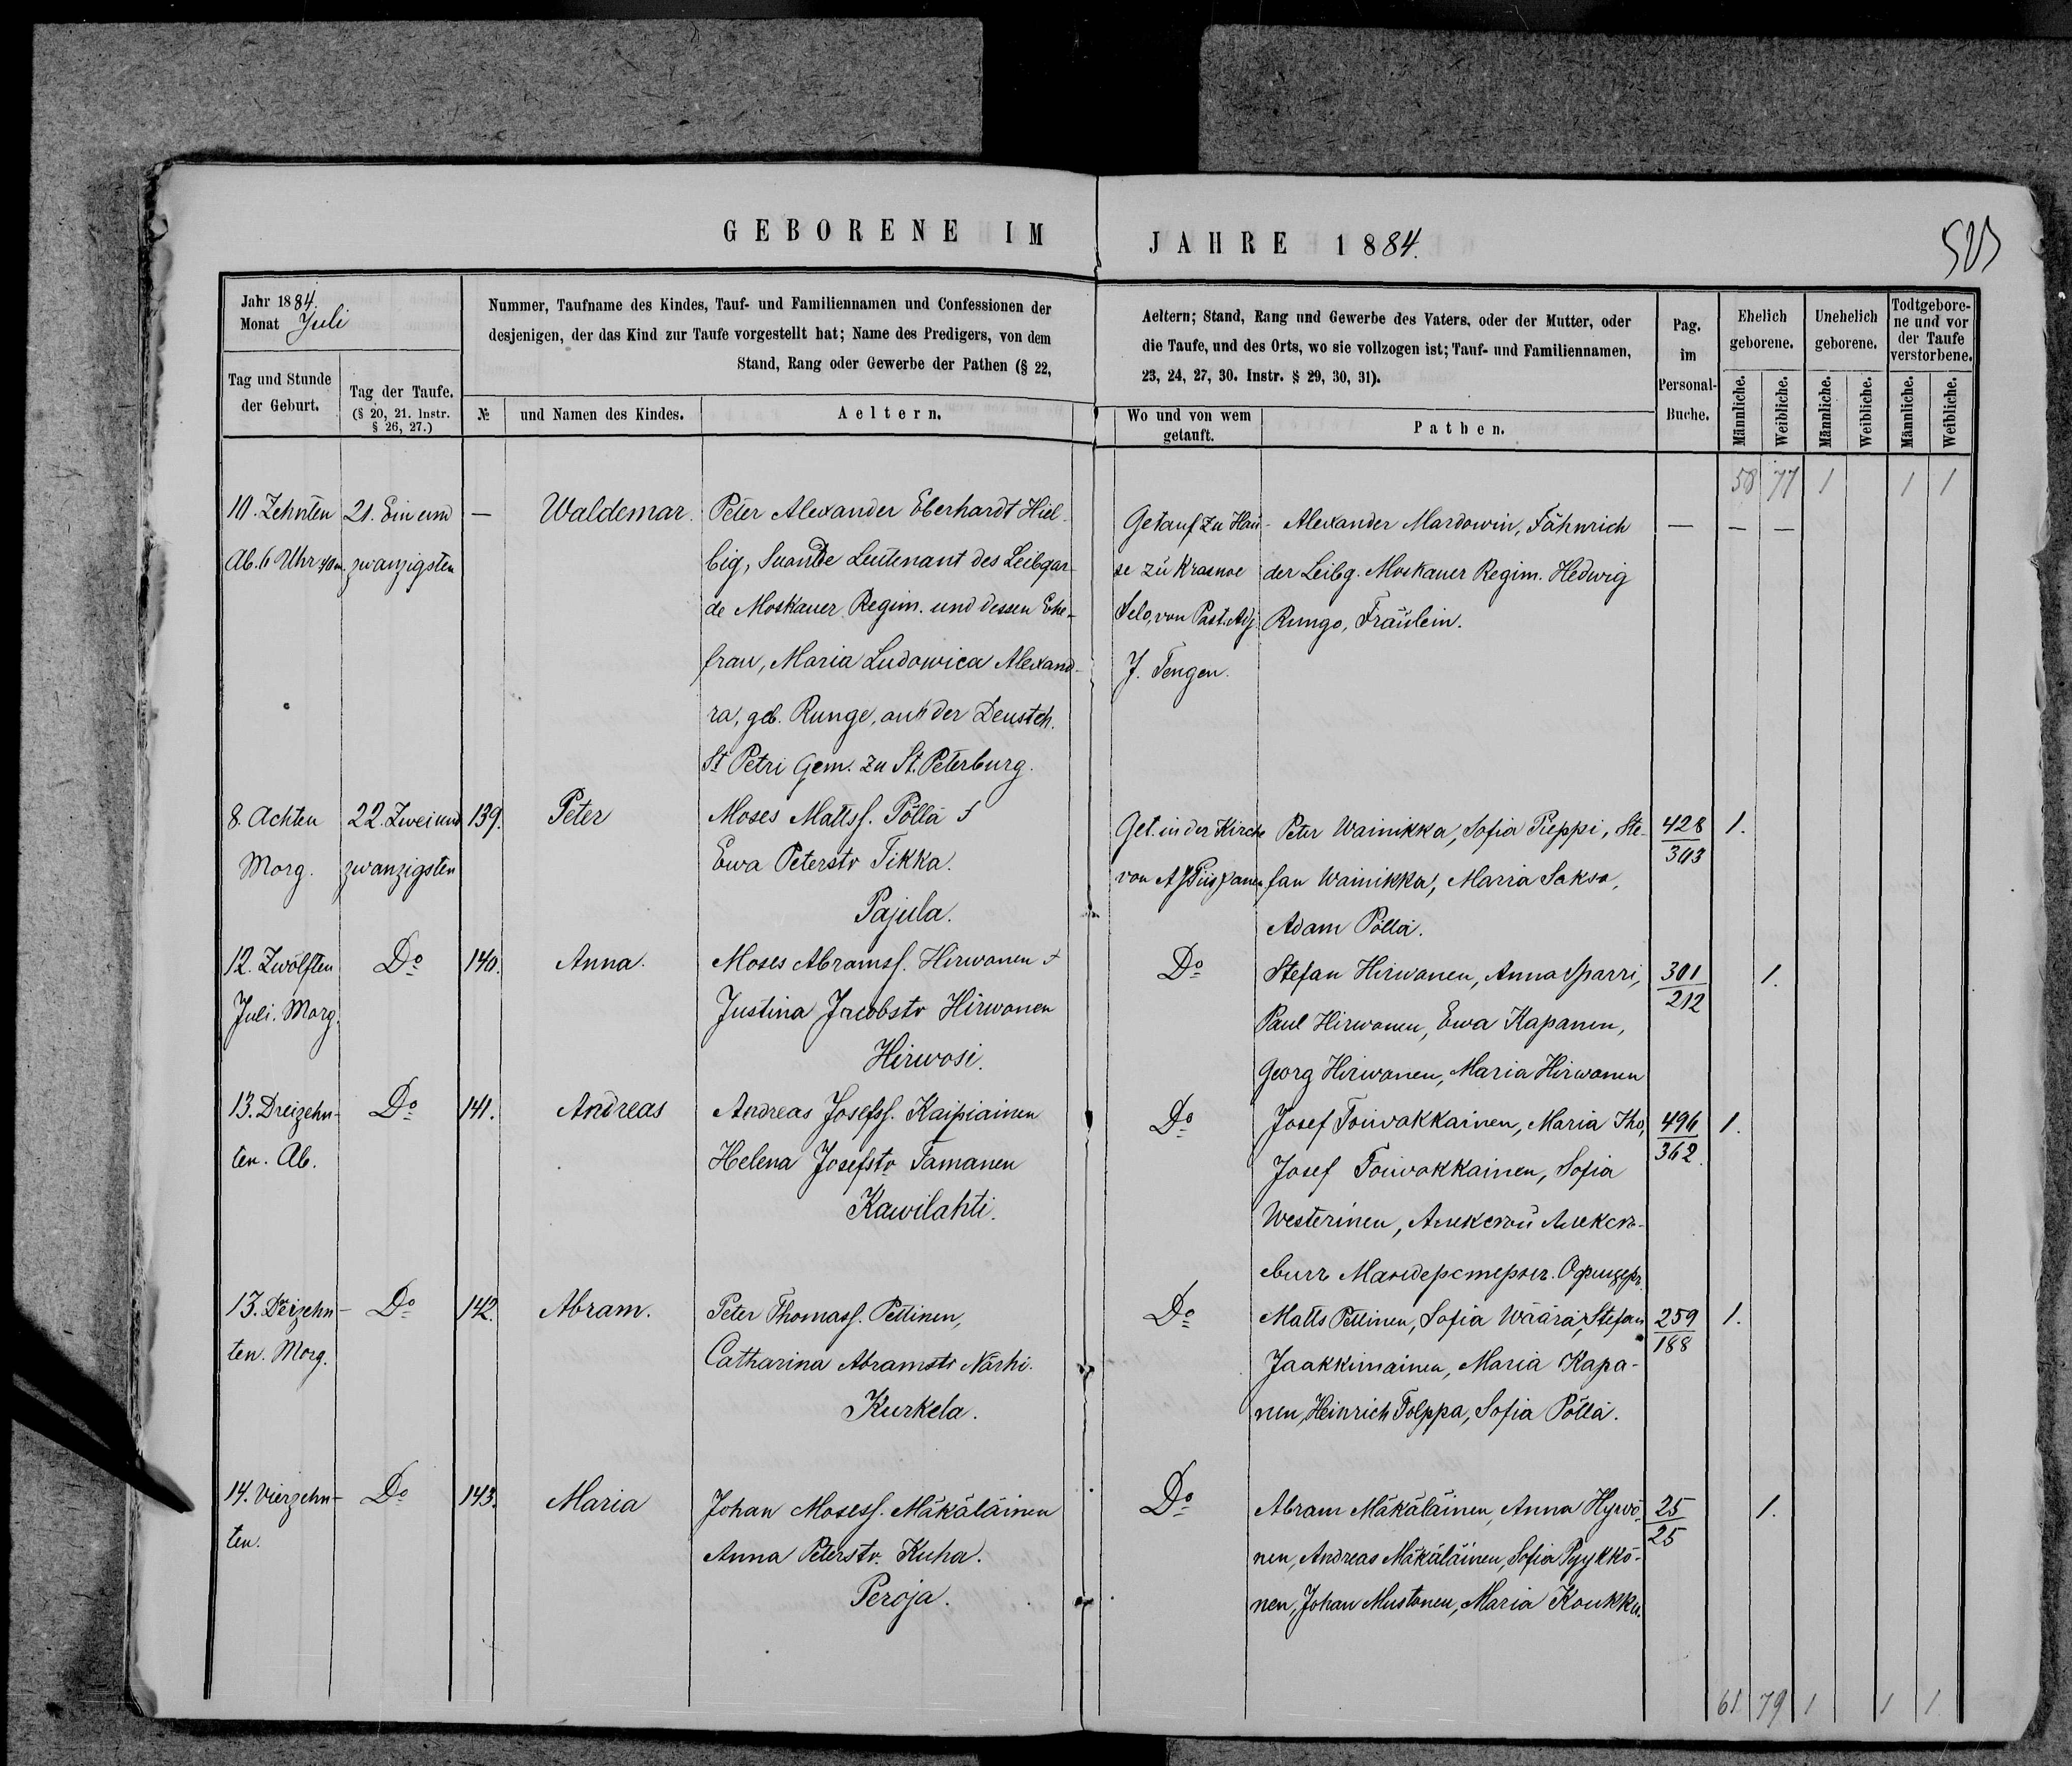 GEBORENE IM JAHRE 1884.
Jahr 1884.
Monat Juli
Tag und Stunde
der Geburt.
Tag der Taufe.
(§ 20, 21. Instr.
§ 26, 27.)
Nummer, Taufname des Kindes, Tauf- und Familiennamen und Confessionen der
desjenigen, der das Kind zur Taufe vorgestellt hat; Name des Predigers, von dem
Stand, Rang oder Gewerbe der Pathen (§ 22,
№
und Namen des Kindes.
Aeltern.
Aeltern; Stand, Rang und Gewerbe des Vaters, oder der Mutter, oder
die Taufe, und des Orts, wo sie vollzogen ist; Tauf- und Familiennamen,
23, 24, 27, 30. Instr. § 29, 30, 31).
Wo und von wem
getauft.
Pathen.
Pag.
im
Personal-
Buche.
Ehelich
geborene.
Unehelich
geborene.
Todtgebore-
ne und vor
der Taufe
verstorbene.
Männliche.
Weibliche.
Männliche.
Weibliche.
Männliche.
Weibliche.
58 77 1 1 1
10. Zehnten
Ab. 6 Uhr 40 m.
21. Ein und
zwanzigsten
—
Waldemar.
Peter Alexander Eberhardt Hiel-
big, Leutenant des Leibgar-
de Moskauer Regim. und dessen Ehe-
frau, Maria Ludowica Alexand-
ra, geb. Runge, aus der Deustch.
St Petri Gem. zu St. Peterburg.
Getauf zu Hau-
se zu Krasnoe
Selo, von Past. Adj.
J. Tengen.
Alexander Mardowin, Fähnrich
der Leibg. Moskauer Regim. Hedwig
Rungo, Fräulein.
— — —
8. Achten
Morg.
22. Zwei und
zwanzigsten
139.
Peter
Moses Mattsf. Pöllä
Ewa Peterstr Tikka.
Pajula.
Get. in der Kirche
von
Peter Wainikka, Sofia Pieppi, Ste-
fan Wainikka, Maria Saksa,
Adam Pöllä.
428
303
1.
12. Zwölften
Juli. Morg.
Do
140.
Anna.
Moses Abramsf. Hirwonen
Justina Jacobstr Hirwonen
Hirwosi.
Do
Stefan Hirwonen, Anna Sparri,
Paul Hirwonen, Ewa Kapanen,
Georg Hirwonen, Maria Hirwonen
301
212
1.
13. Dreizehn-
ten. Ab.
Do
141.
Andreas
Andreas Josefsf. Kaipiainen
Helena Josefstr Tamanen
Kawilahti.
Do
Josef Toiwakkainen, Maria Iho,
Josef Toiwakkainen, Sofia
Westerinen, Алексѣй Алексѣ-
евичъ Офицеръ
496
362.
1.
13. Dreizehn-
ten. Morg.
Do
142.
Abram.
Peter Thomasf. Pettinen,
Catharina Abramstr Närhi.
Kurkela.
Do
Matts Pettinen, Sofia Wäärä, Stefan
Jaakkimainen, Maria Kapa-
nen, Heinrich Tolppa, Sofia Pöllä.
259
188
1.
14. Vierzehn-
ten.
Do
143.
Maria
Johan Mosesf. Mäkäläinen
Anna Peterstr. Kuha.
Peroja.
Do
Abram Mäkäläinen, Anna Hywö-
nen, Andreas Mäkäläinen, Sofia Pyykkö-
nen, Johan Mustonen, Maria Koukku.
25
25
1.
61 79 1 1 1